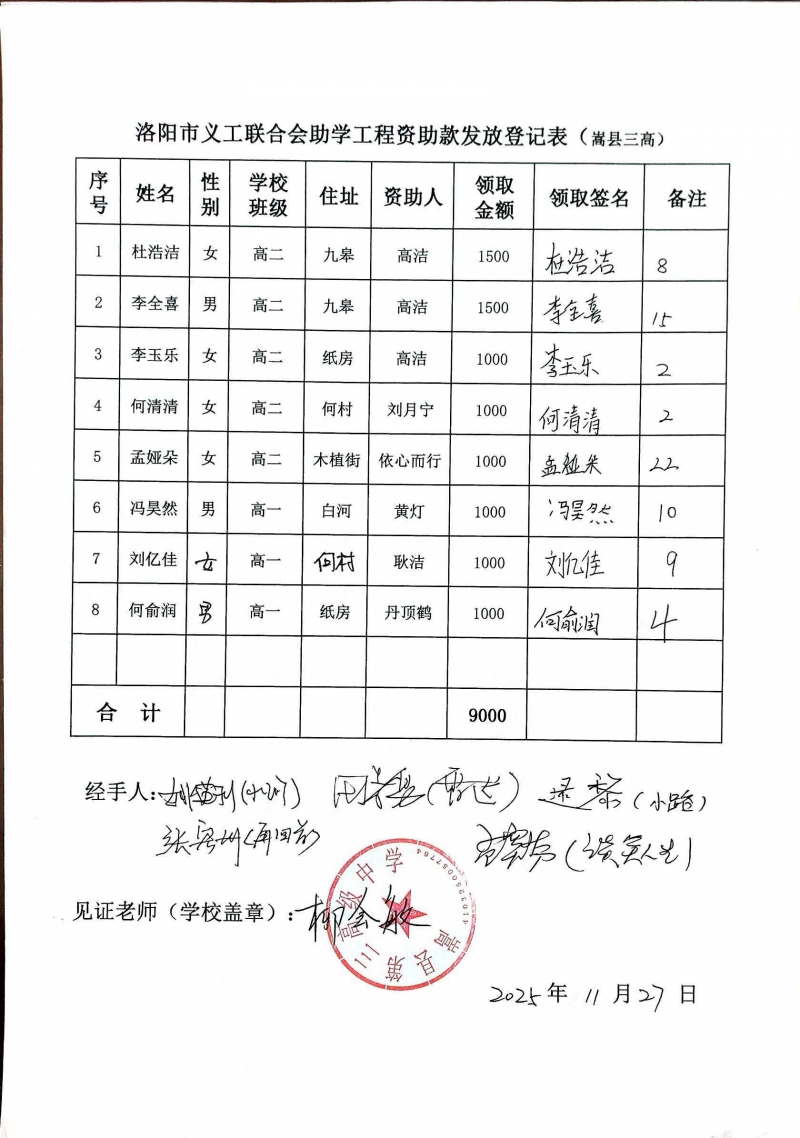 洛阳市义工联合会助学工程资助款发放登记表（嵩县三高）
序号 姓名 性别 学校班级 住址 资助人 领取金额 领取签名 备注
1 杜浩洁 女 高二 九皋 高洁 1500 杜浩洁 8
2 李全喜 男 高二 九皋 高洁 1500 李全喜 15
3 李玉乐 女 高二 纸房 高洁 1000 李玉乐 2
4 何清清 女 高二 何村 刘月宁 1000 何清清 2
5 孟娅朵 女 高二 木植街 依心而行 1000 孟娅朵 22
6 冯昊然 男 高一 白河 黄灯 1000 冯昊然 10
7 刘亿佳 女 高一 何村 耿洁 1000 刘亿佳 9
8 何俞润 男 高一 纸房 丹顶鹤 1000 何俞润 4
合计 9000
经手人：
（小路）
见证老师（学校盖章）：柳会敏
嵩县第三高级中学
2025年11月27日